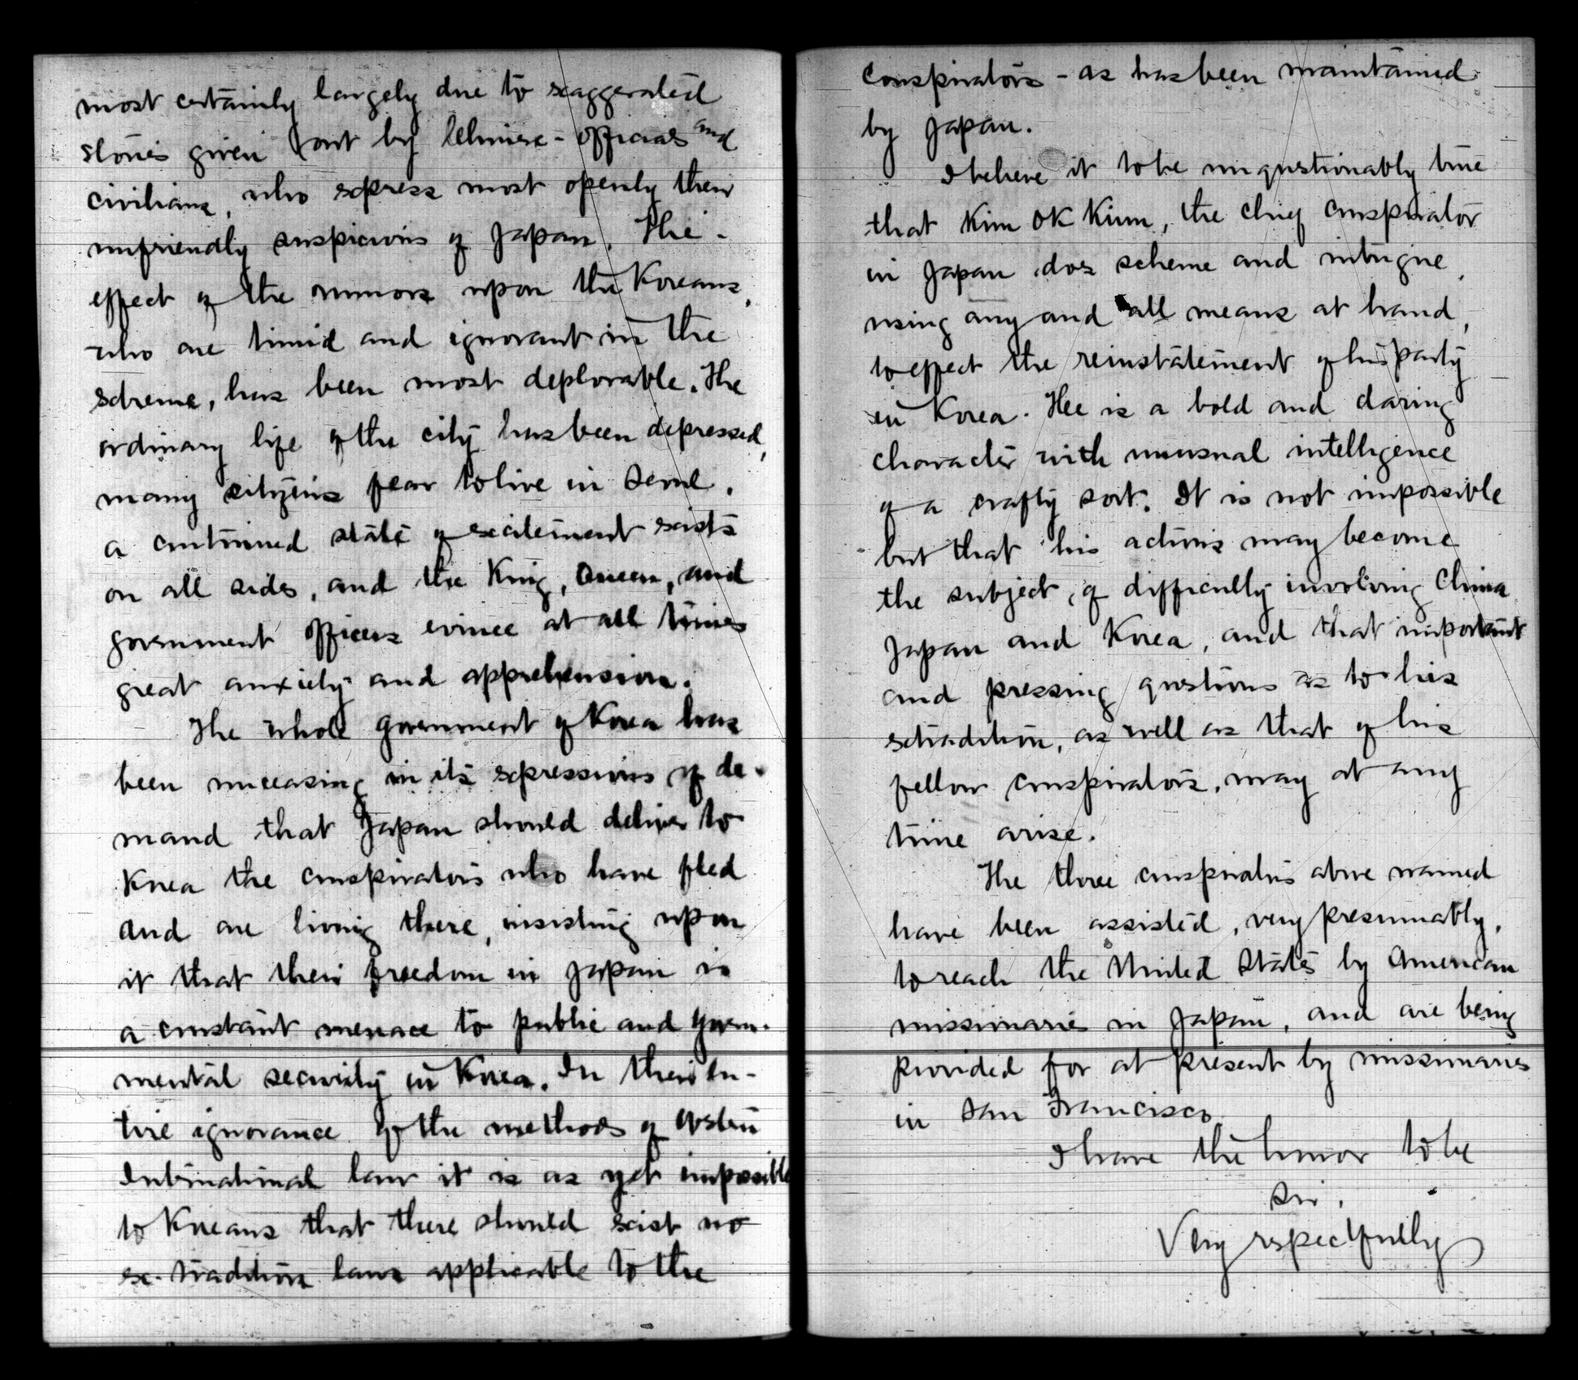 most certainly largely due to exaggerated
stories given out by Chinese - officials and
civilians, who express most openly their
unfriendly suspicions of Japan. The -
effect of the rumors upon the Koreans,
who are timid and ignorant in the
extreme, has been most deplorable. The
ordinary life of the city has been depressed,
many citizens fear to live in Seoul.
a continued state of excitement exists
on all sides, and the King, Queen, and
government officers evince at all times
great anxiety and apprehension.
The whole government of Korea has
been unceasing in its expressions of de-
mand that Japan should deliver to
Korea the conspirators who have fled
and are living there, insisting upon
it that their freedom in Japan is
a constant menace to public and govern-
mental security in Korea. In their en-
tire ignorance of the methods of Western
International law it is as yet impossible
to Koreans that there should exist no
ex-tradition laws applicable to the
conspirators - as has been maintained
by Japan.
I believe it to be unquestionably true
that Kim OK Kium, the chief conspirator
in Japan does scheme and intrigue,
using any and all means at hand,
to effect the reinstatement of his party
in Korea. Hee is a bold and daring
character with unusual intelligence
of a crafty sort. It is not impossible
but that his actions may become
the subject of difficulty involving China
Japan and Korea, and that important
and pressing questions as to his
extradition, as well as that of his
fellow conspirators, may at any
time arise.
The three conspirators above named
have been assisted, very presumably,
to reach the United States by American
missionaries in Japan, and are being
provided for at present by missionaries
in San Francisco
I have the honor to be
Sir,
Very respectfully